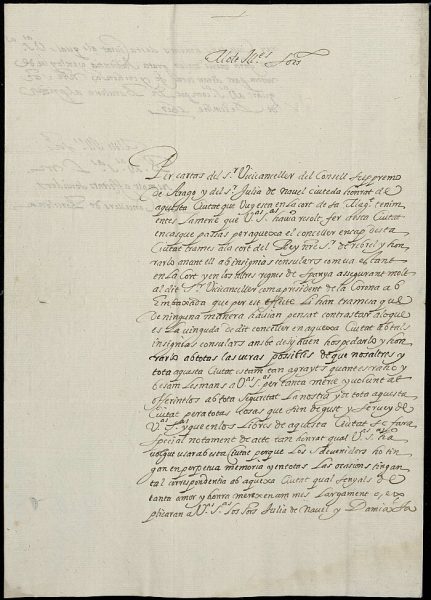 Molt Mag.chs Sors
Per cartas del s.r Vicicanceller del Consell Supremo
de Arago y del s.r Julia de Navel ciutedá honrat de
aquesta Ciutat que vuy esta en la cort de sa Mag.t tenim
entes la mercè que V.as S.as havia resolt, fer a esta Ciutat
en cas que passas per aquexa el conceller en cap de esta
Ciutat trames a la cort del Rey nre S.r de rebrel y hon
rarlo anant ell ab insignias consulars com ua
en la Cort y en los altres regnes de Spanya assegurant molt
al dit S.r Vicicanceller com a president de la Corona
Embaxada que per est effecte li han tramesa que
de ninguna manera havian pensat contrastar a lo que
es la vinguda de dit conceller en aquexa Ciutat ab tals
insignias consulars ans be de hospedarlo y hon
rarlo ab totas las veras possibles de que nosaltres y
tota aquesta Ciutat estam tan agrayts quant es raho y
besam les mans a V.as S.as per tanta mercè y
offerintlos ab tota seguritat La nostra y de tota aquesta
Ciutat pera totas cosas que sien de gust y servey de
V.as S.as y que en los Llibres de aquesta Ciutat se fara
special notament de acte tan honrat qual V.as S.as ha
volgut usar ab esta Ciutat perque Los sdevenidors ho tin
gan en perpetua memoria y en totas Las ocasions tingan
tal correspondentia ab aquexa Ciutat qual senyals de
tanta amor y honra merexen com mes Llargament o ex
plicaran a V.as S.as los sors Julia de Navel y Damia